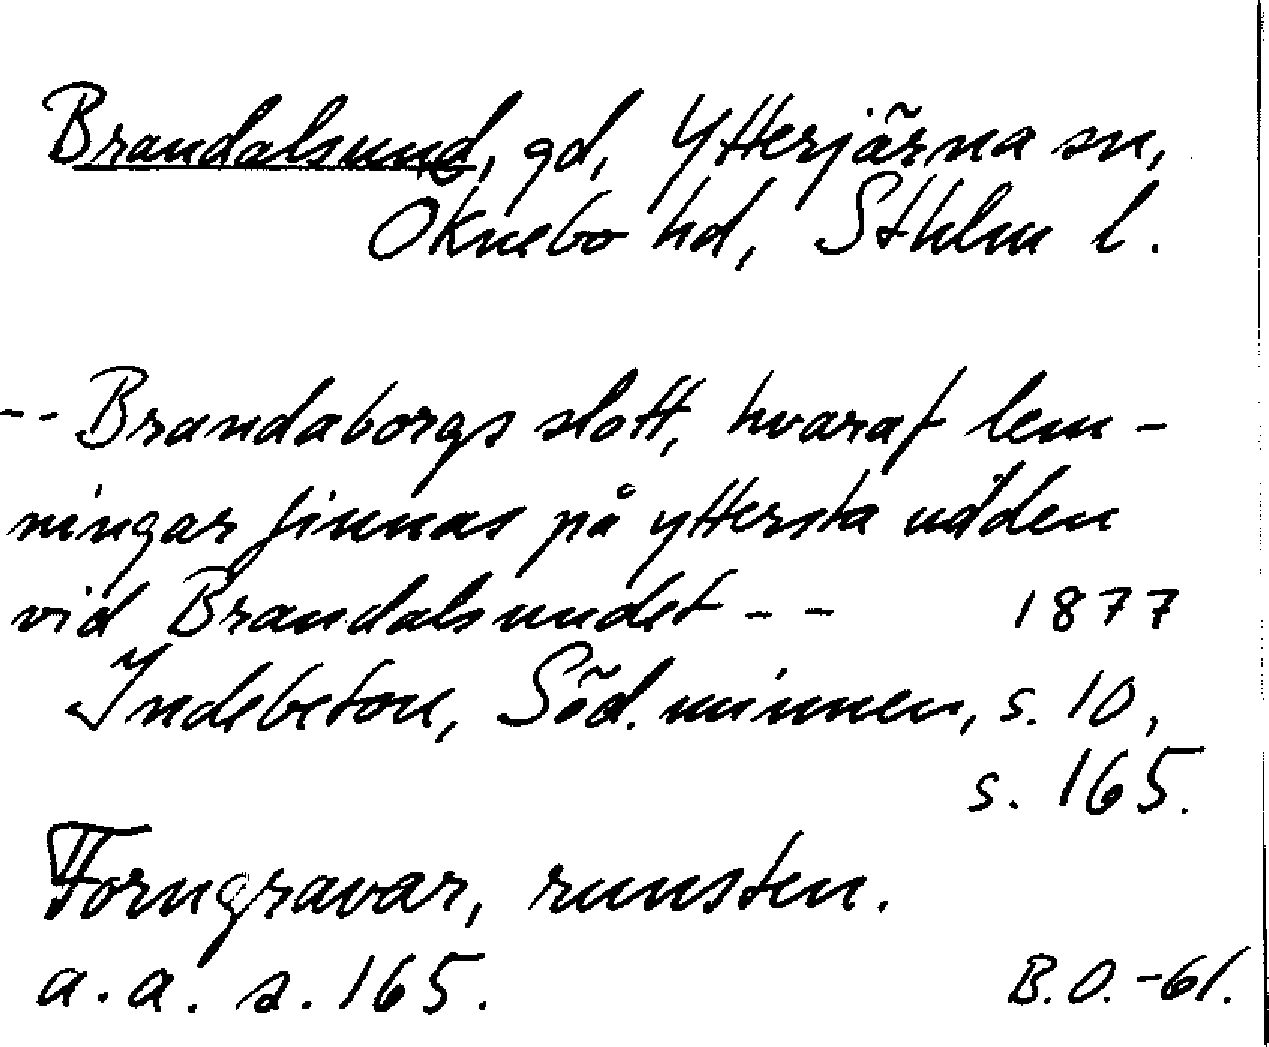 Brandalsund, gd, Ytterjärna sn,
Öknebo hd, Sthlm l.
-- Brandaborgs slott, hvaraf lem-
ningar finnas på yttersta udden
vid Brandalsundet -- 1877
Indebetou, Söd. minnen, s. 10,
s. 165.
Forngravar, runsten.
a.a. s. 165. B.O. -61.